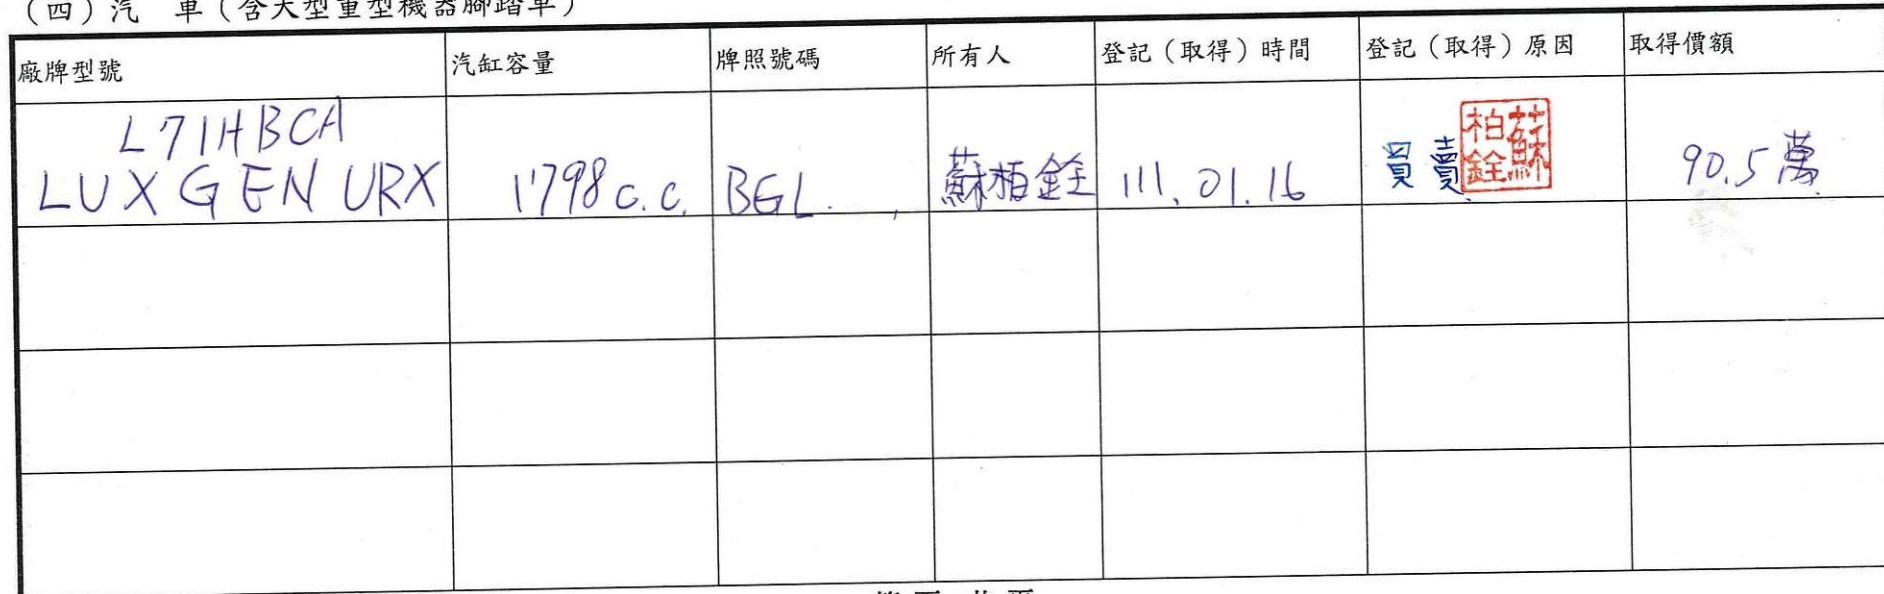 （四）汽　車（含大型重型機器腳踏車）
廠牌型號 汽缸容量 牌照號碼 所有人 登記（取得）時間 登記（取得）原因 取得價額
L71HBCA
LUXGEN URX 1798 c.c. BGL 蘇柏銓 111.01.16 買賣 90.5萬
蘇柏銓